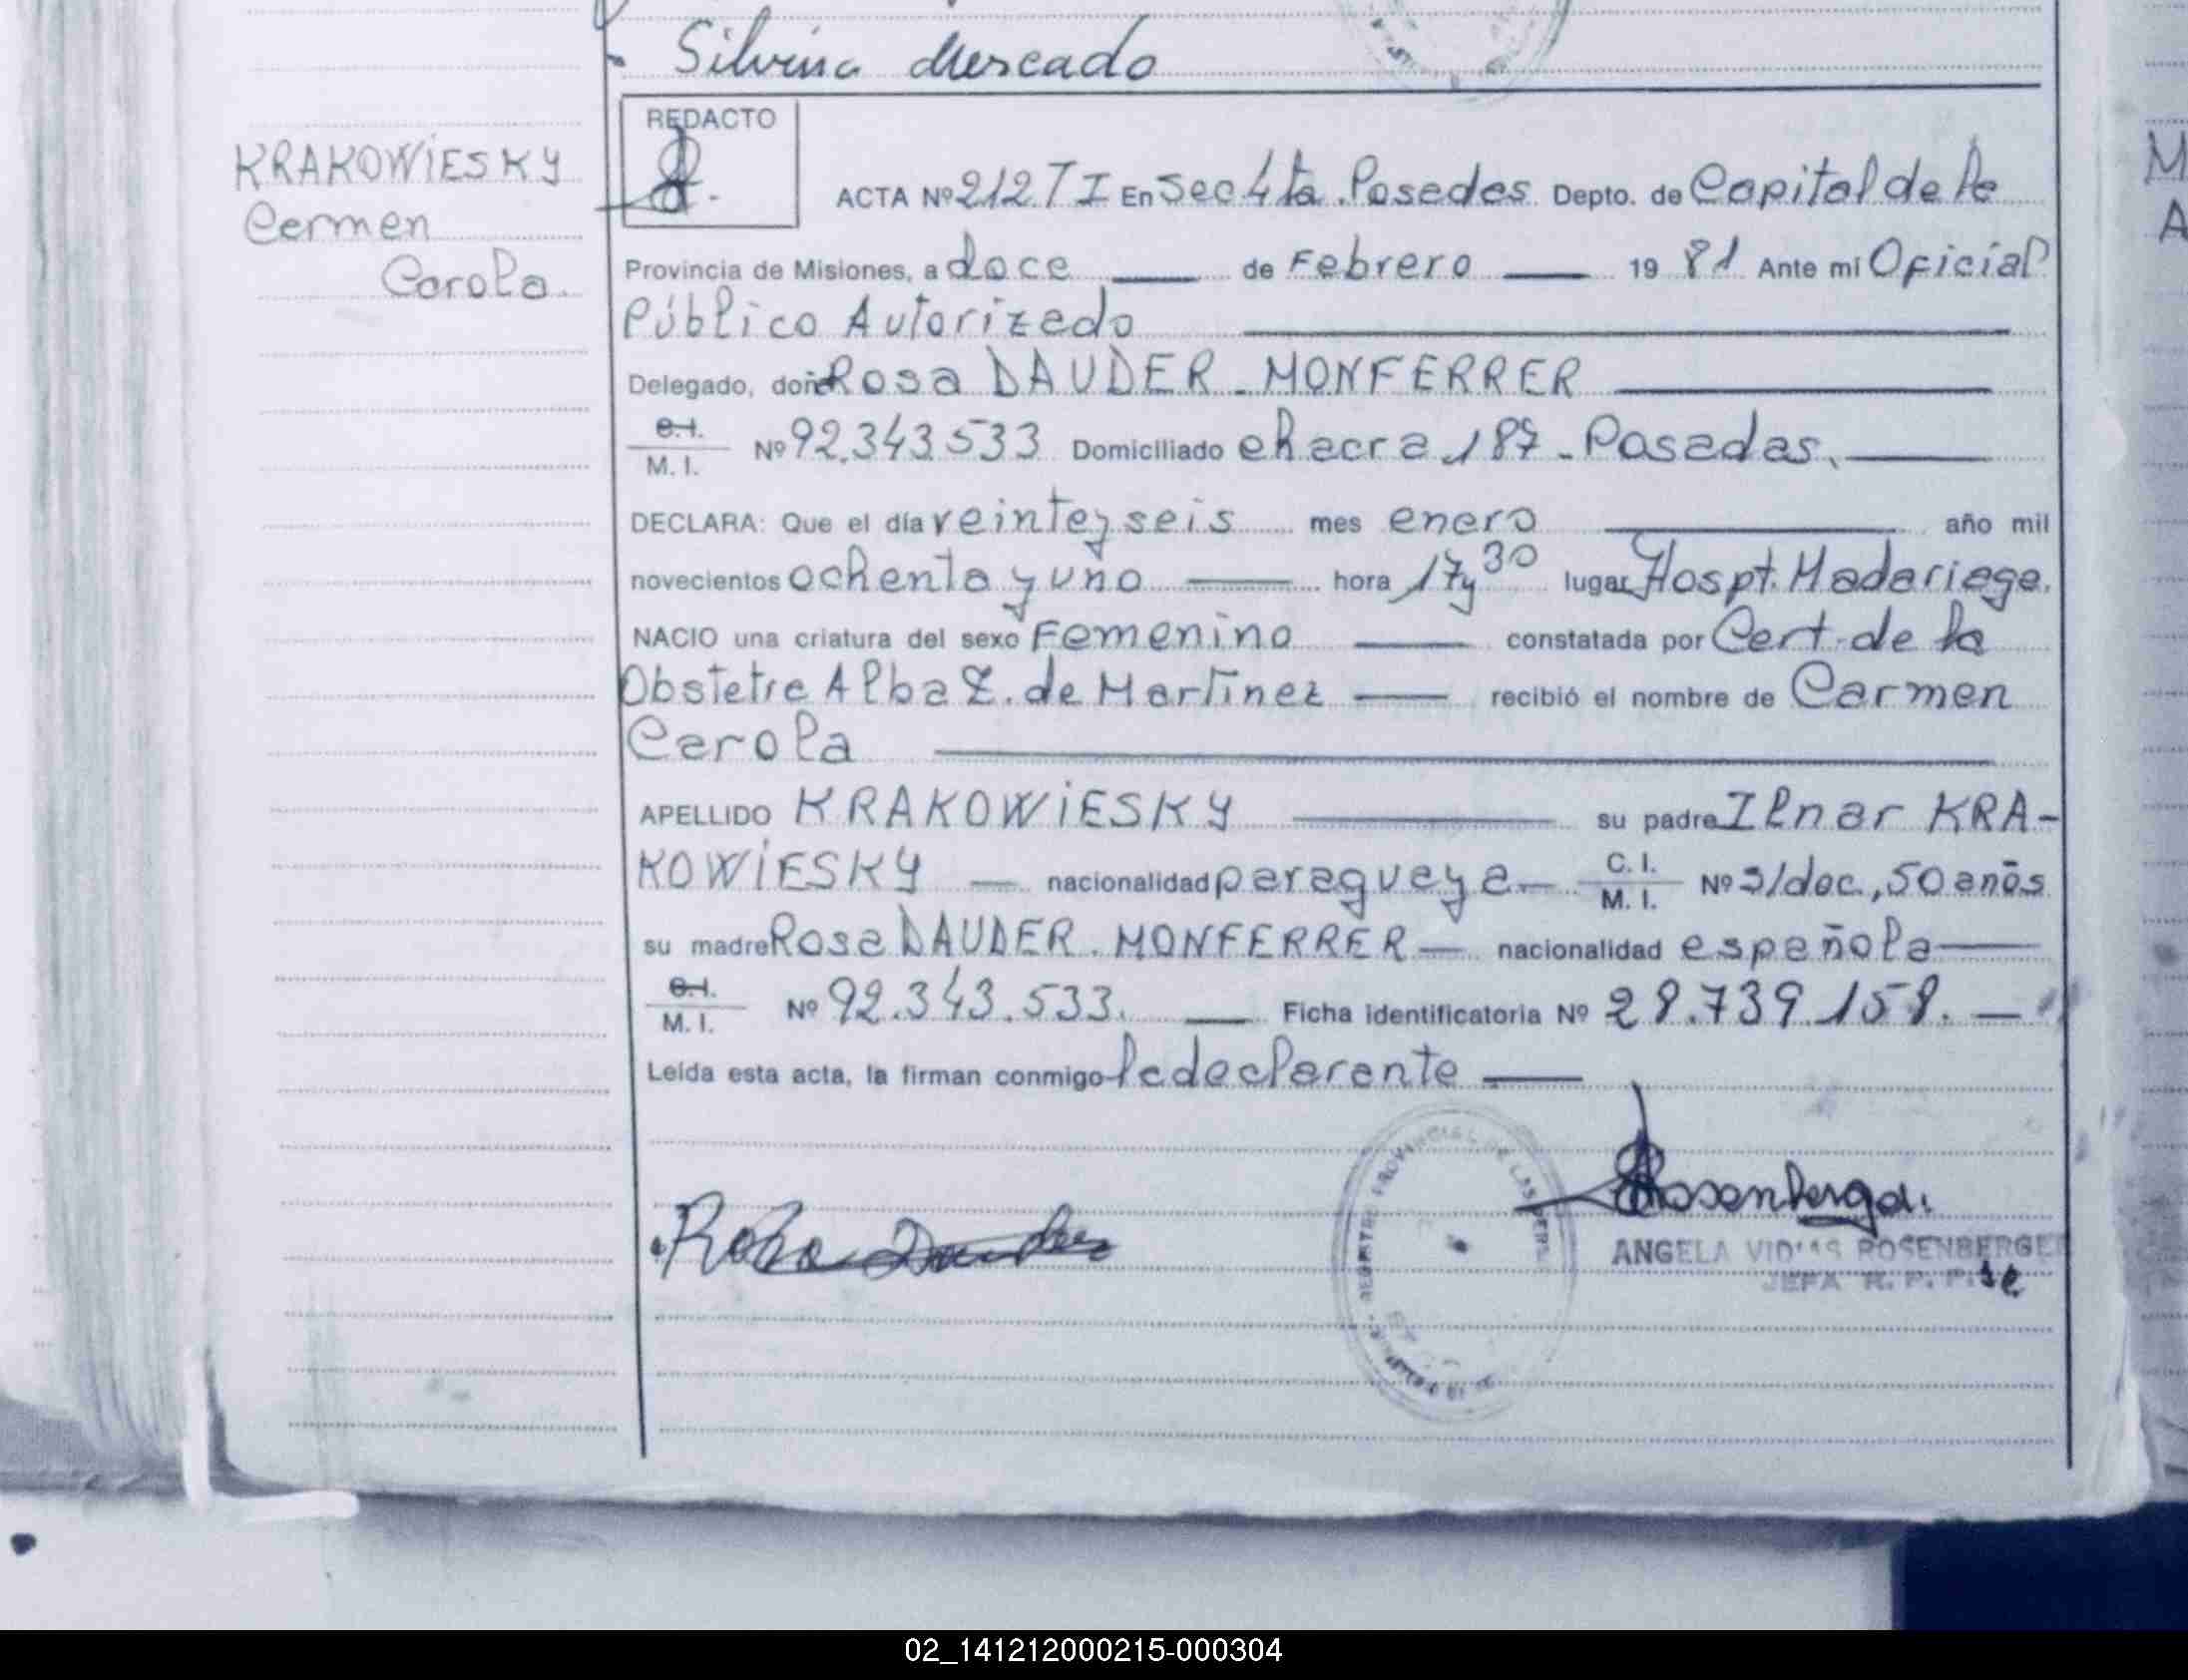 Silvina Mercado
REDACTO
KRAKOWIESKY
Carmen
Carola.
ACTA Nº 212 T I En Sec 4ta. Posadas Depto. de Capital de la
Provincia de Misiones, a doce de Febrero 19 81 Ante mi Oficial
Público Autorizado
Delegado, doña Rosa DAUDER MONFERRER
C.I.
M. I. Nº 92.343.533 Domiciliado chacra 187 - Posadas.
DECLARA: Que el día veinte y seis mes enero año mil
novecientos ochenta y uno hora 17 y 30 lugar Hospt. Madariaga.
NACIO una criatura del sexo Femenino constatada por Cert. de la
Obstetra Alba Z. de Martinez recibió el nombre de Carmen
Carola
APELLIDO KRAKOWIESKY su padre Ilnar KRA-
KOWIESKY nacionalidad paraguaya C. I.
M. I. Nº s/doc., 50 años
su madre Rosa DAUDER MONFERRER nacionalidad española
C.I.
M. I. Nº 92.343.533. Ficha identificatoria Nº 28.739.158.
Leída esta acta, la firman conmigo la declarante
Rosa Dauder
REGISTRO PROVINCIAL DE LAS PERS
ANGELA ROSENBERGER
JEFA R. P. P.
02_141212000215-000304